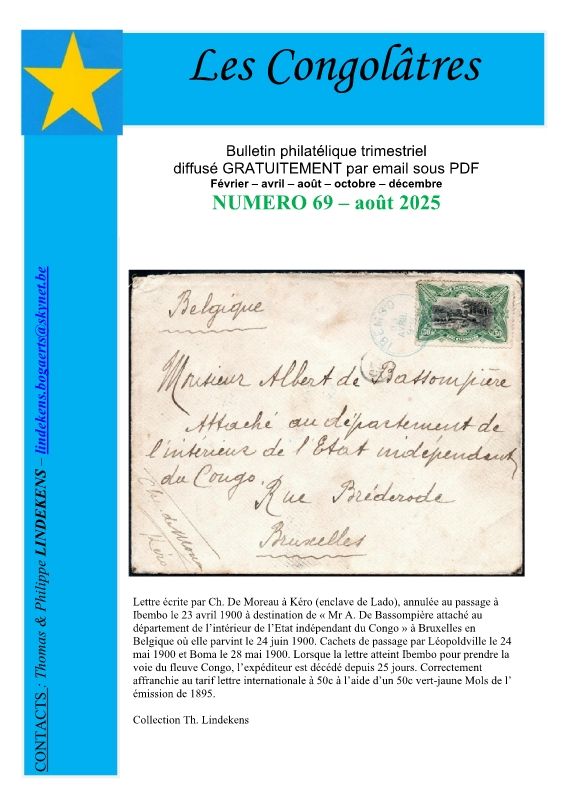 Les Congolâtres
Bulletin philatélique trimestriel
diffusé GRATUITEMENT par email sous PDF
Février – avril – août – octobre – décembre
NUMERO 69 – août 2025
CONTACTS : Thomas & Philippe LINDEKENS – lindekens.bogaerts@skynet.be
Belgique
IBEMBO
Monsieur Albert de Bassompière
Attaché au département de
l'intérieur de l'Etat indépendant
du Congo.
Rue Bréderode
Bruxelles
Ch. de Moreau
Kéro
Lettre écrite par Ch. De Moreau à Kéro (enclave de Lado), annulée au passage à
Ibembo le 23 avril 1900 à destination de « Mr A. De Bassompière attaché au
département de l'intérieur de l'Etat indépendant du Congo » à Bruxelles en
Belgique où elle parvint le 24 juin 1900. Cachets de passage par Léopoldville le 24
mai 1900 et Boma le 28 mai 1900. Lorsque la lettre atteint Ibembo pour prendre la
voie du fleuve Congo, l'expéditeur est décédé depuis 25 jours. Correctement
affranchie au tarif lettre internationale à 50c à l'aide d'un 50c vert-jaune Mols de l'
émission de 1895.
Collection Th. Lindekens